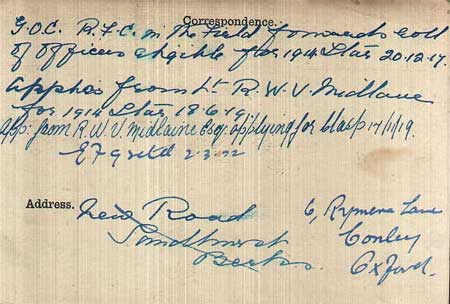 Correspondence.
G.O.C. R.F.C. in the Field forwards roll
of officers eligible for 1914 Star 20-12-17.
from Lt R.W.V. Midlane
for 1914 Star 18.6.19.
App. from R.W.V. Midlane Esq. applying for Clasp 14/11/19.
2.3.22
Address. New Road
Sandhurst
Berks.
6, Lane
Oxford.